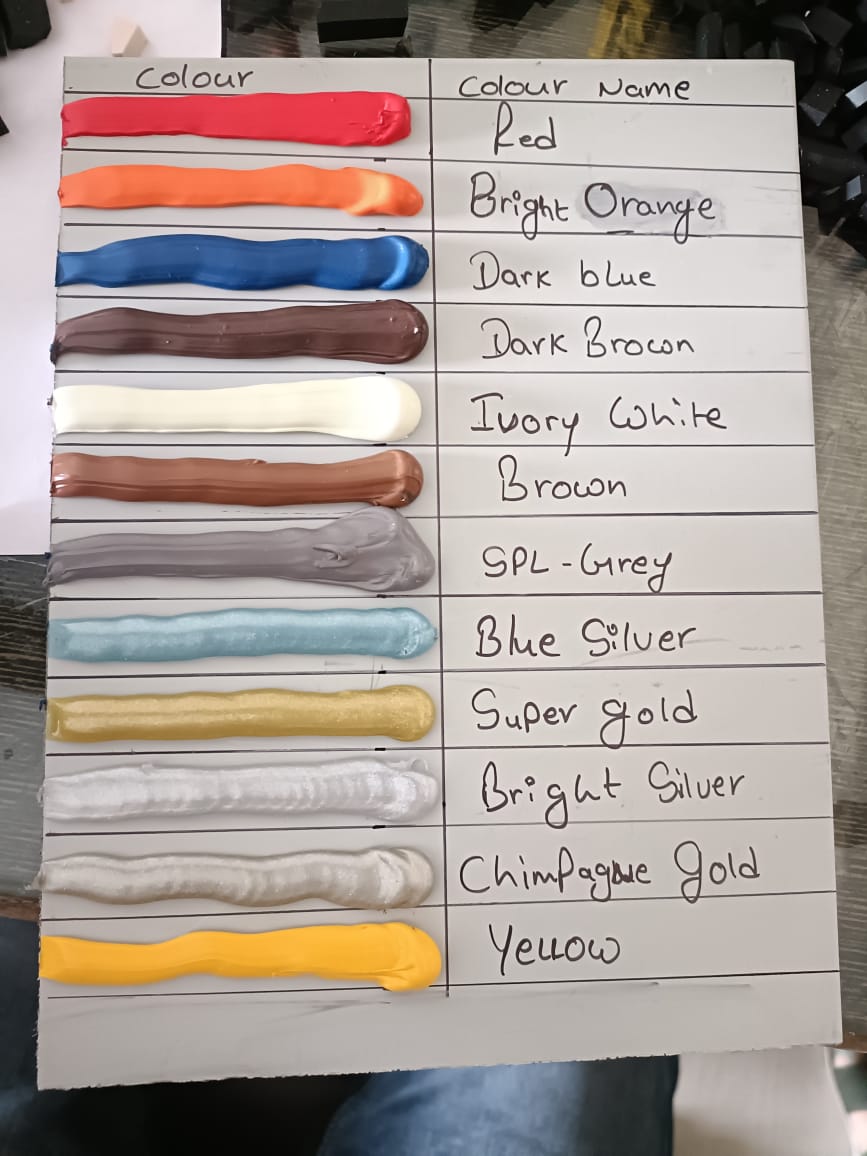 Colour Colour Name
Red
Bright Orange
Dark blue
Dark Brown
Ivory White
Brown
SPL-Grey
Blue Silver
Super gold
Bright Silver
Chimpagne Gold
Yellow